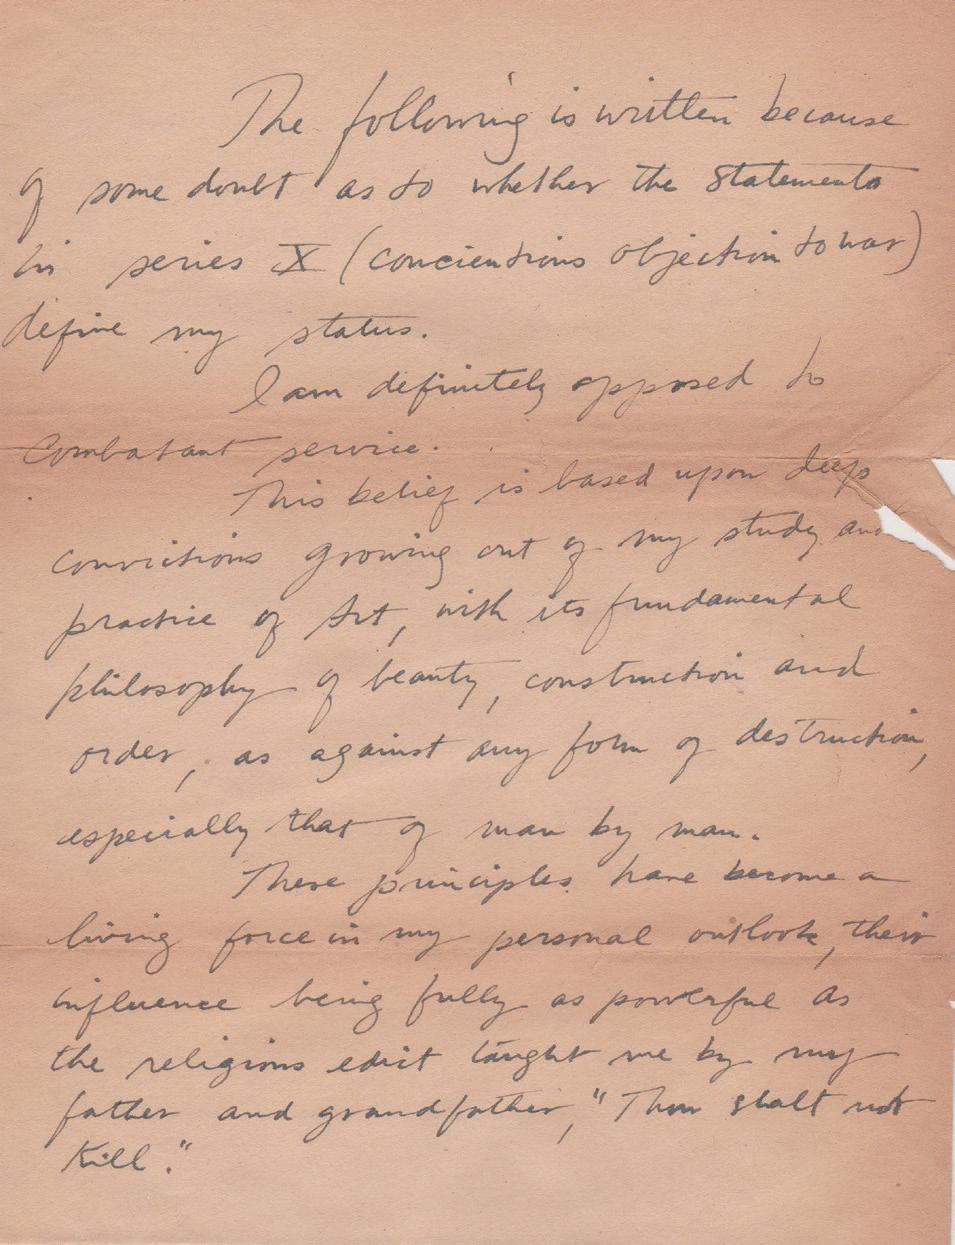 The following is written because
of some doubt as to whether the statements
in series X (concientious objection to war)
define my status.
I am definitely opposed to
combatant service.
This belief is based upon deep
convictions growing out of my study and
practice of Art, with its fundamental
philosophy of beauty, construction and
order, as against any form of destruction,
especially that of man by man.
These principles have become a
living force in my personal outlook, their
influence being fully as powerful as
the religious edict taught me by my
father and grandfather, "Thou shalt not
Kill."